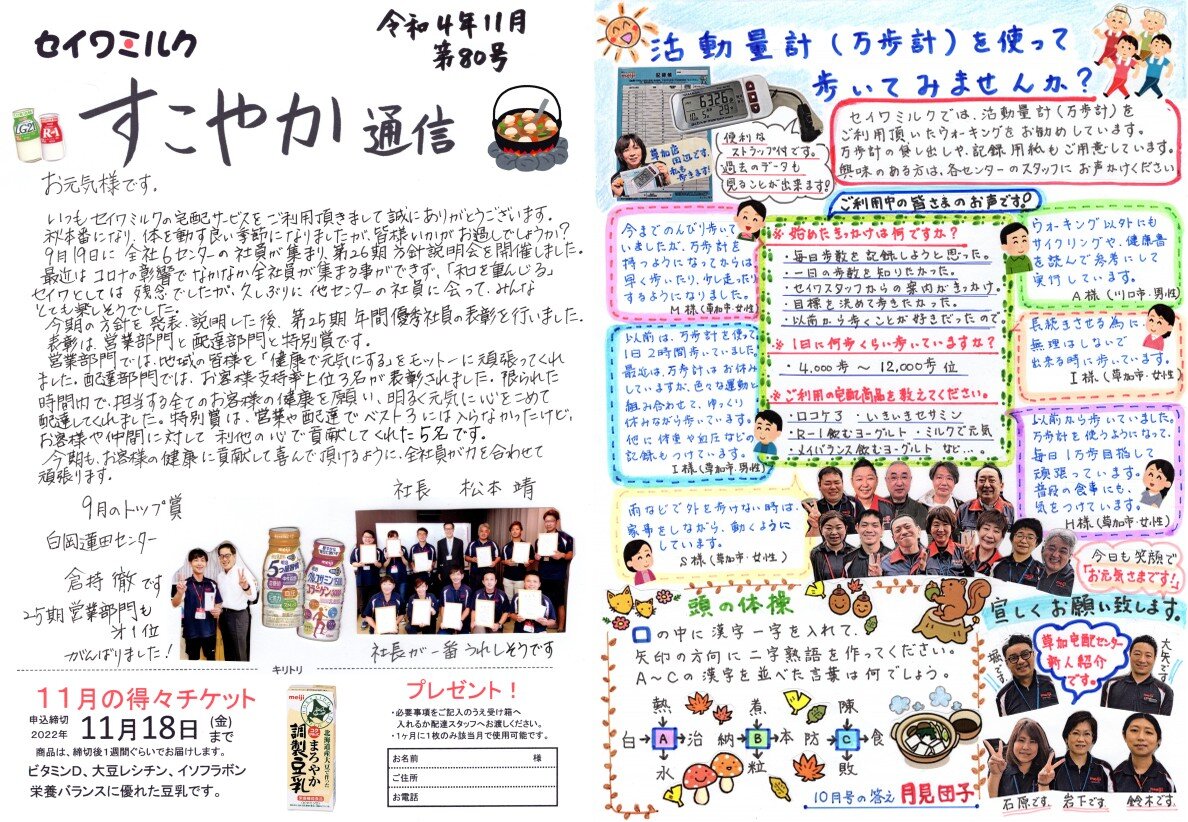 セイワミルク
令和4年11月
第80号
すこやか通信
お元気様です。
いつもセイワミルクの宅配サービスをご利用頂きまして誠にありがとうございます。
秋本番になり、体を動す良い季節になりましたが、皆様いかがお過しでしょうか?
9月19日に全社6センターの社員が集まり、第26期方針説明会を開催しました。
最近はコロナの影響でなかなか全社員が集まる事ができず、「和を重んじる」
セイワとしては残念でしたが、久しぶりに他センターの社員に会って、みんな
とても楽しそうでした。
今期の方針を発表、説明した後、第25期年間優秀社員の表彰を行いました。
表彰は、営業部門と配達部門と特別賞です。
営業部門では、地域の皆様を「健康で元気にする」をモットーに頑張ってくれ
ました。配達部門では、お客様支持率上位3名が表彰されました。限られた
時間内で、担当する全てのお客様の健康を願い、明るく元気に心をこめて
配達してくれました。特別賞は、営業や配達でベスト3には入らなかったけど、
お客様や仲間に対して利他の心で貢献してくれた5名です。
今期も、お客様の健康に貢献して喜んで頂けるように、全社員が力を合わせて
頑張ります。
社長 松本 靖
9月のトップ賞
白岡蓮田センター
倉持 徹です
25期営業部門も
才1位
がんばりました!
社長が一番うれしそうです
キリトリ
11月の得々チケット
申込締切
2022年 11月18日(金)まで
商品は、締切後1週間ぐらいでお届けします。
ビタミンD、大豆レシチン、イソフラボン
栄養バランスに優れた豆乳です。
meiji
北海道産大豆を作った
まろやか
調製豆乳
プレゼント!
・必要事項をご記入のうえ受け箱へ
入れるか配達スタッフへお渡しください。
・1ヶ月に1枚のみ該当月で使用可能です。
お名前 様
ご住所
お電話
活動量計(万歩計)を使って
歩いてみませんか?
セイワミルクでは、活動量計(万歩計)を
ご利用頂いたウオーキングをお勧めしています。
万歩計の貸し出しや、記録用紙もご用意しています。
興味のある方は、各センターのスタッフにお声かけください
便利な
ストラップ付です。
過去のデータも
見ることが出来ます!
草加店
周辺です。
私も
歩きます!
ご利用中の皆さまのお声です!
今までのんびり歩いて
いましたが、万歩計を
持つようになってからは
早く歩いたり、少し走ったり
するようになりました。
M様(草加市・女性)
以前は、万歩計を使って
1日2時間歩いていました。
最近は、万歩計はお休み
していますが、色々な運動と
組み合わせて、ゆっくり
休みながら歩いています。
他に体重や血圧などの
記録もつけています。
I様(草加市・男性)
雨などで外を歩けない時は、
家事をしながら、動くように
しています。
S様(草加市・女性)
※始めたきっかけは何ですか?
・毎日歩数を記録しようと思った。
・一日の歩数を知りたかった。
・セイワスタッフからの案内がきっかけ。
・目標を決めて歩きたかった。
・以前から歩くことが好きだったので
※1日に何歩くらい歩いていますか?
・4,000歩〜12,000歩位
※ご利用の宅配商品を教えてください。
・ロコケア ・いきいきセサミン
・R-1飲むヨーグルト ・ミルクで元気
・メイバランス飲むヨーグルト など…。
ウォーキング以外にも
サイクリングや、健康書
を読んで参考にして
実行しています。
A様(川口市・男性)
長続きさせる為に
無理はしないで
出来る時に歩いています。
I様(草加市・女性)
以前から歩いていました。
万歩計を使うようになって、
毎日1万歩目指して
頑張っています。
普段の食事にも、
気をつけています。
H様(草加市・女性)
今日も笑顔で
「お元気さまです!」
頭の体操
□の中に漢字一字を入れて、
矢印の方向に二字熟語を作ってください。
A〜Cの漢字を並べた言葉は何でしょう。
熱 煮 陳
白→A→治 納→B→本 防→C→食
水 粒 敗
10月号の答え 月見団子
宜しくお願い致します。
草加宅配センター
新人紹介
です。
堀です。
大矢です
石原です。
岩下です。
鈴木です。